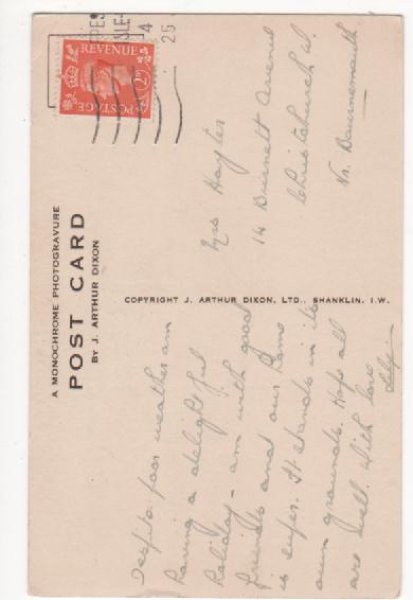 A MONOCHROME PHOTOGRAVURE
POST CARD
BY J. ARTHUR DIXON
COPYRIGHT J. ARTHUR DIXON, LTD., SHANKLIN, I.W.
REVENUE
POSTAGE
2½
4
25
Despite poor weather am
having a delightful
holiday – am with good
friends and our Home
is super. It stands in its
own grounds. Hope all
are well. With love
Mrs Hayles
14 Burnett Avenue
Christchurch
Nr. Bournemouth